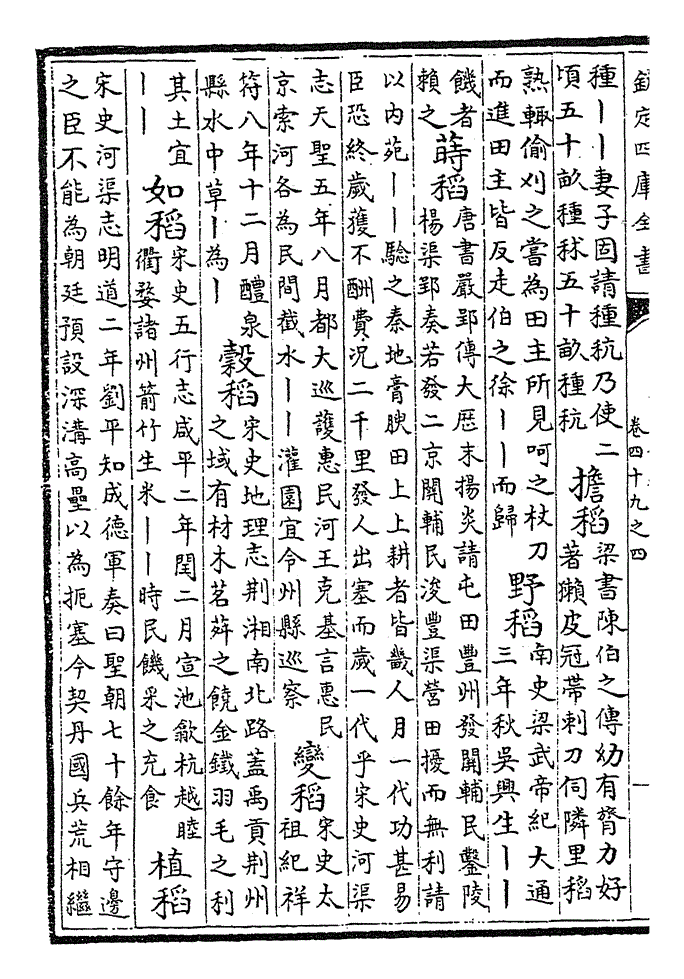 欽定四庫全書 卷四十九之四
種丨丨妻子固請種秔乃使二
頃五十畝種秫五十畝種秔
擔稻
梁書陳伯之傳幼有膂力好
著獺皮冠帶刺刀伺隣里稻
熟輙偷刈之嘗為田主所見呵之杖刀
而進田主皆反走伯之徐丨丨而歸
野稻
南史梁武帝紀大通
三年秋吳興生丨丨
饑者
賴之
蒔稻
唐書嚴郢傳大厯末揚炎請屯田豐州發關輔民鑿陵
楊渠郢奏若發二京關輔民浚豐渠營田擾而無利請
以内苑丨丨驗之秦地膏腴田上上耕者皆畿人月一代功甚易
臣恐終歲獲不酬費況二千里發人出塞而歲一代乎宋史河渠
志天聖五年八月都大巡護惠民河王克基言惠民
京索河各為民間截水丨丨灌園宜令州縣巡察
變稻
宋史太
祖紀祥
符八年十二月醴泉
縣水中草丨為丨
穀稻
宋史地理志荆湘南北路蓋禹貢荆州
之域有材木茗荈之饒金鐵羽毛之利
其土宜
丨丨
如稻
宋史五行志咸平二年閏二月宣池歙杭越睦
衢婺諸州箭竹生米丨丨時民饑采之充食
植稻
宋史河渠志明道二年劉平知成德軍奏曰聖朝七十餘年守邊
之臣不能為朝廷預設深溝高壘以為扼塞今契丹國兵荒相繼